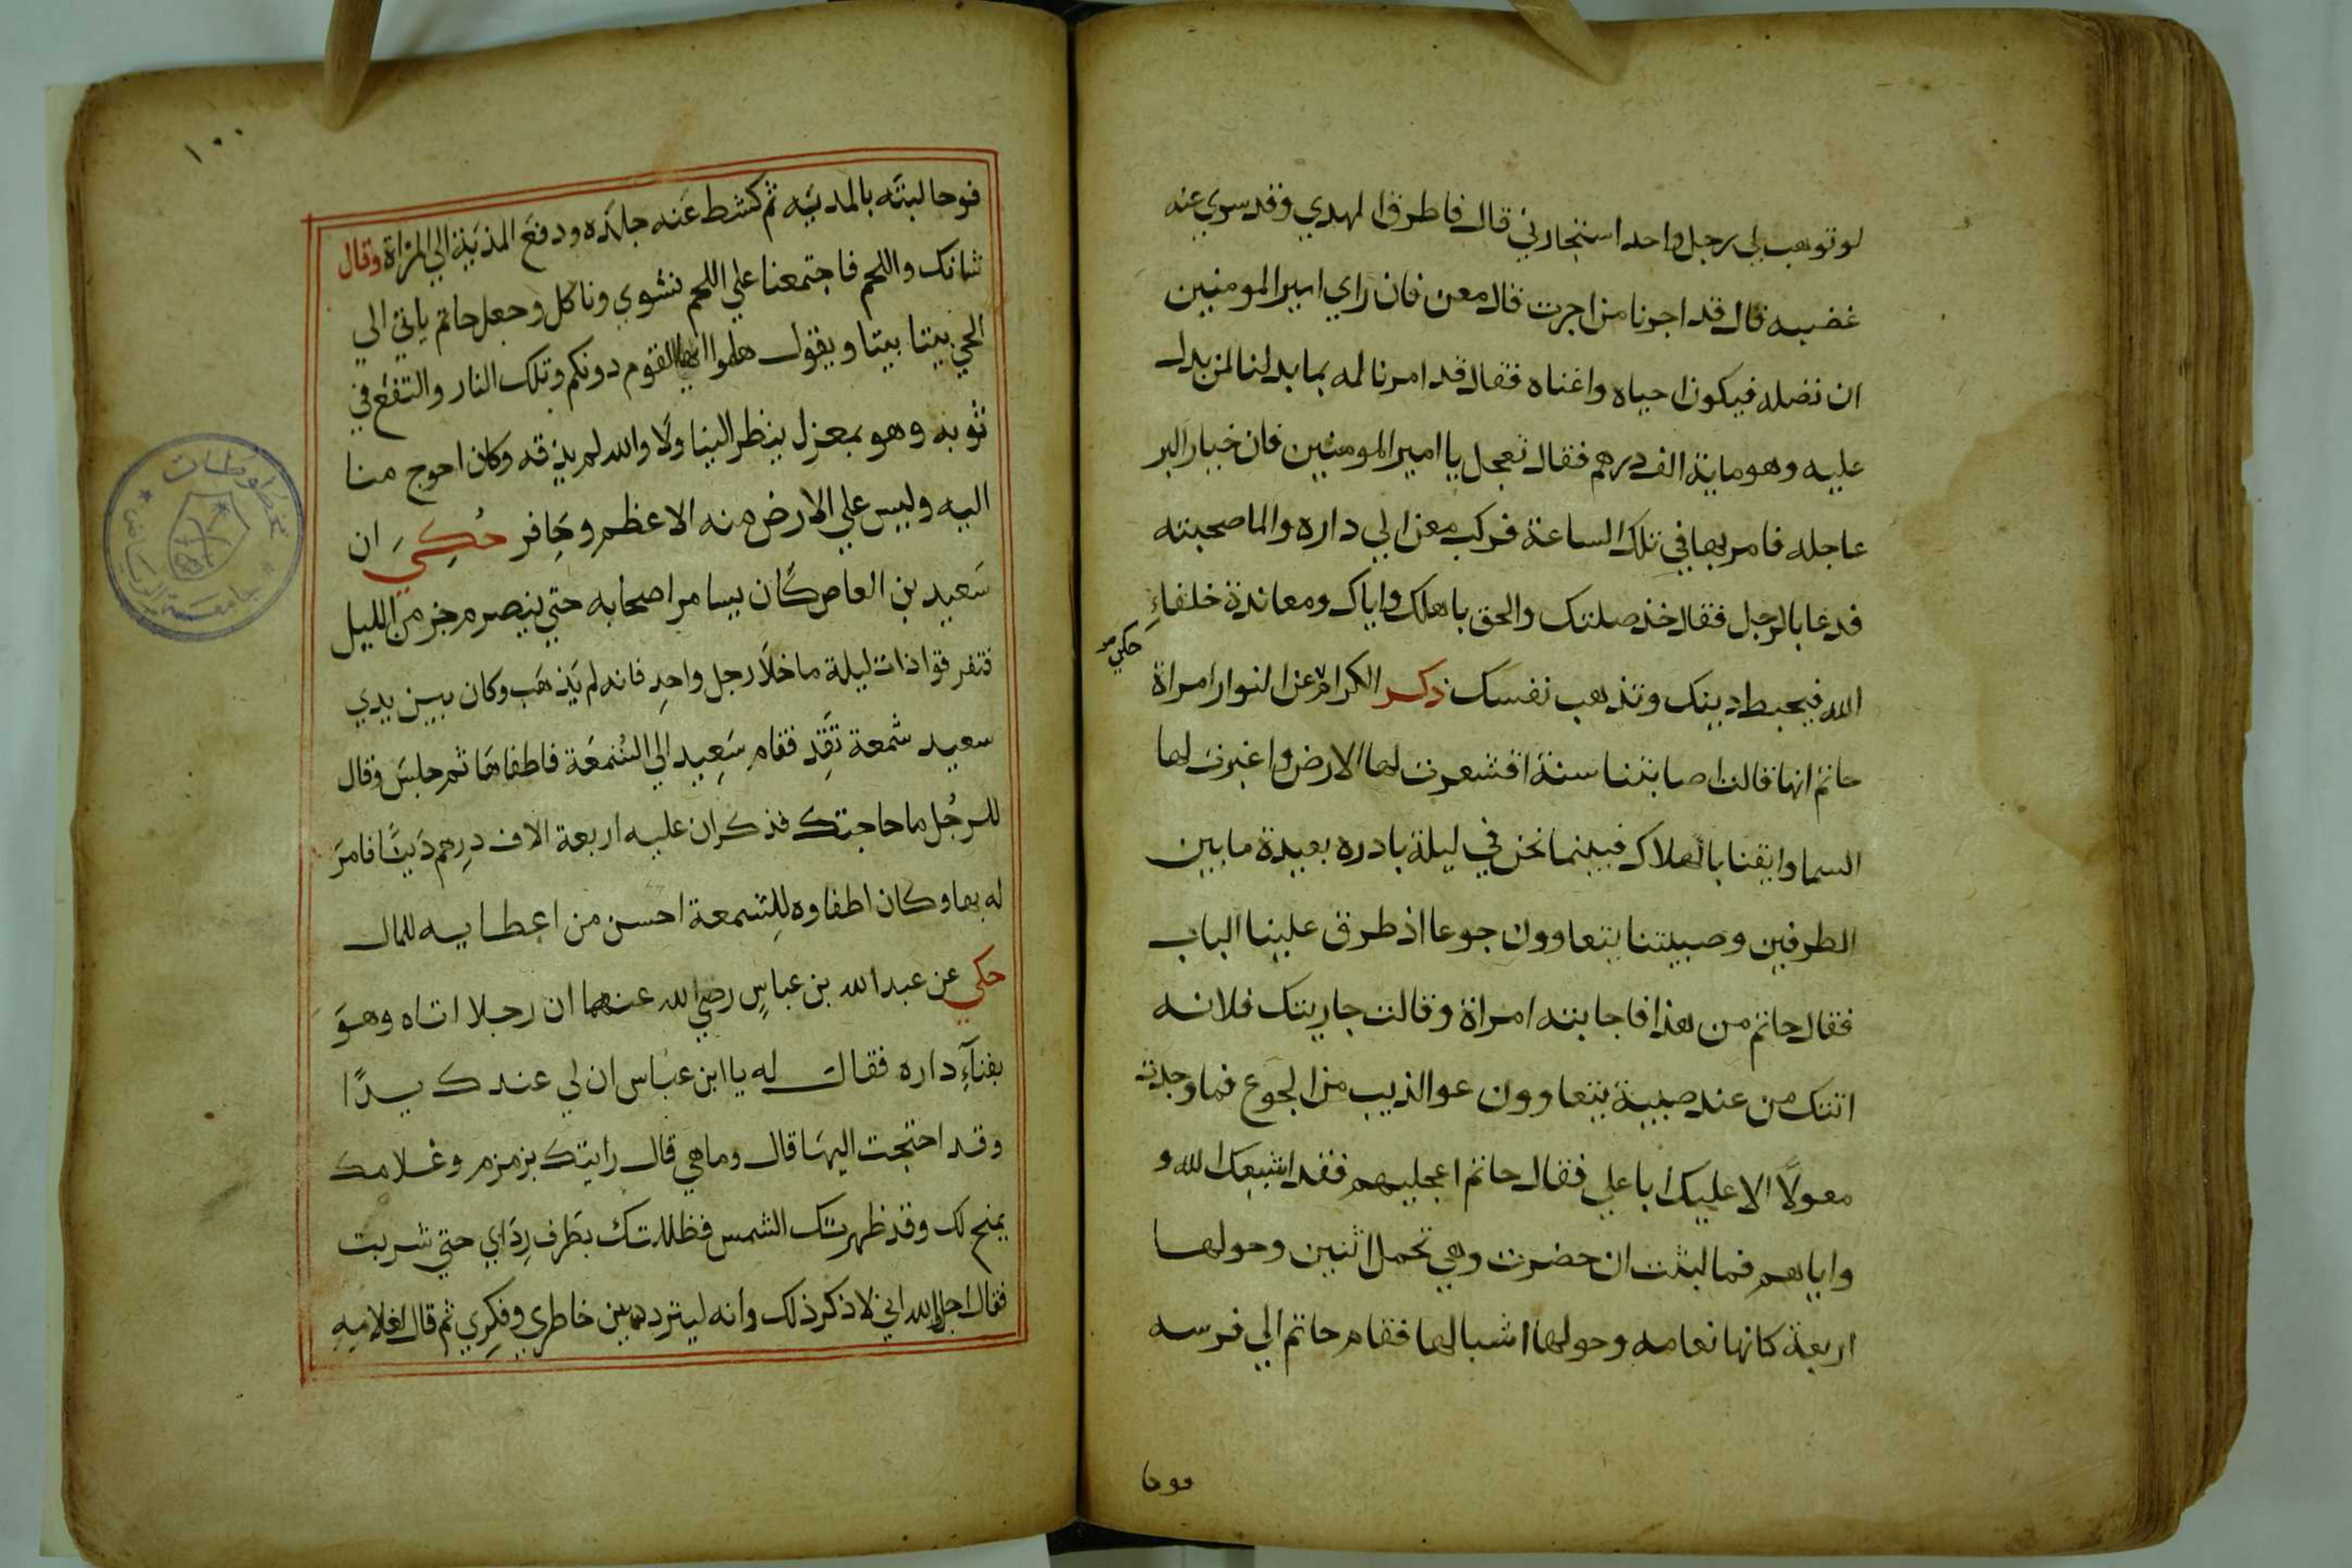 لو توهب لي رجل واحد استجارني قال فاطرق المهدي وقد سري عنه
غضبه قال قد اجرنا من اجرت قال معن فان راي امير المومنين
ان نضله فيكون احياه واغناه فقال قد امرنا له بما بدلنا لمن يدل
عليه وهو ماية الف درهم فقال تعجل يا امير المومنين فان خيار البر
عاجله فامر بها في تلك الساعة فركب معن الي داره والما صحبته
فدعا بالرجل فقال خذ صلتك والحق باهلك واياك ومعاندة خلفاء
حكي
الله فيحبط دينك وتذهب نفسك ذكر الكرام عن النوار امراة
حاتم انها قالت اصابتنا سنة اقشعرت لها الارض واغبرت لها
السما وايقنا بالهلاك فبينما نحن في ليلة بادره بعيدة ما بين
الطرفين وصبيتنا يتعاوون جوعا اذ طرق علينا الباب
فقال حاتم من هذا فاجابته امراة وقالت جاريتك فلانه
اتتك من عند صبية يتعاوون عو الذيب من الجوع فما وجدت
معولا الا عليك ابا علي فقال حاتم اعجليهم فقد اشبعك الله و
واياهم فما لبثت ان حضرت وهي تحمل اثنين وحولها
اربعة كانها نعامه وحولها اشبالها فقام حاتم الي فرسه
١٠٠
فوجا لبته بالمديه ثم كشط عنه جلده ودفع المذية الي المراة وقال
شانك واللحم فاجتمعنا علي اللحم نشوي وناكل وجعل حاتم ياتي الي
الحي بيتا بيتا ويقول هلموا ايها القوم دونكم وتلك النار والتفع في
ثوبه وهو بمعزل ينظر الينا ولا والله لم يذقه وكان احوج منا
اليه وليس علي الارض منه الا عظم وحافر حكي ان
سعيد بن العاص كان يسامر اصحابه حتي ينصرم جز من الليل
فتفرقوا ذات ليلة ما خلا رجل واحد فانه لم يذهب وكان بين يدي
سعيد شمعة تقد فقام سعيد الي الشمعة فاطفاها ثم جلس وقال
للرجل ما حاجتك فذكر ان عليه اربعة الاف درهم دينا فامر
له بها وكان اطفاوه للشمعة احسن من اعطايه للمال
حكي عن عبد الله بن عباس رضي الله عنهما ان رجلا اتاه وهو
بفناء داره فقال له يا ابن عباس ان لي عندك يدا
وقد احتجت اليها قال وما هي قال رايتك بزمزم وغلامك
يمنح لك وقد ظهرتك الشمس فظللتك بطرف رداي حتي شربت
فقال اجل والله اني لاذكر ذلك وانه ليتردد بين خاطري وفكري ثم قال لغلامه
مخطوطات
جامعة الرياض